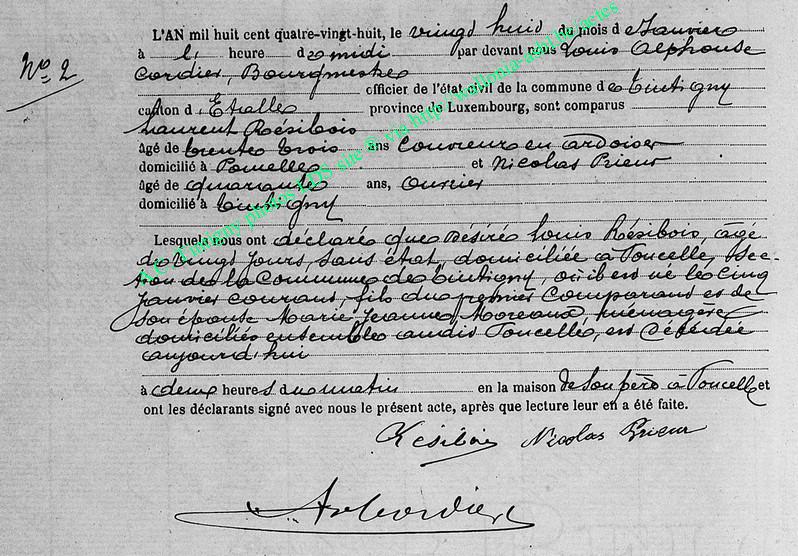 No. 2
L'AN mil huit cent quatre-vingt-huit, le vingt huit du mois de Janvier
à heure de midi par devant nous Louis Alphonse
Cordier, Bourgmestre
officier de l'état civil de la commune de Tintigny
canton d' Etalle province de Luxembourg, sont comparus
Laurent Résibois
âgé de trente trois ans Couvreur en ardoises
domicilié à Poncelle et Nicolas Prieur
âgé de quarante ans, ouvrier
domicilié à Tintigny
Lesquels nous ont déclaré que Désiré Louis Résibois, âgé
de vingt jours, sans état, domiciliée à Poncelle, Sec-
tion de la Commune de Tintigny, où il est né le cinq
Janvier courant, fils du premier Comparant et de
son épouse Marie Jeanne Moreaux, ménagère
domiciliés ensemble audit Poncelle, est décédée
aujourd'hui
à deux heures du matin en la maison de son père à Poncelle et
ont les déclarants signé avec nous le présent acte, après que lecture leur en a été faite.
Résibois Nicolas Prieur
Cordier